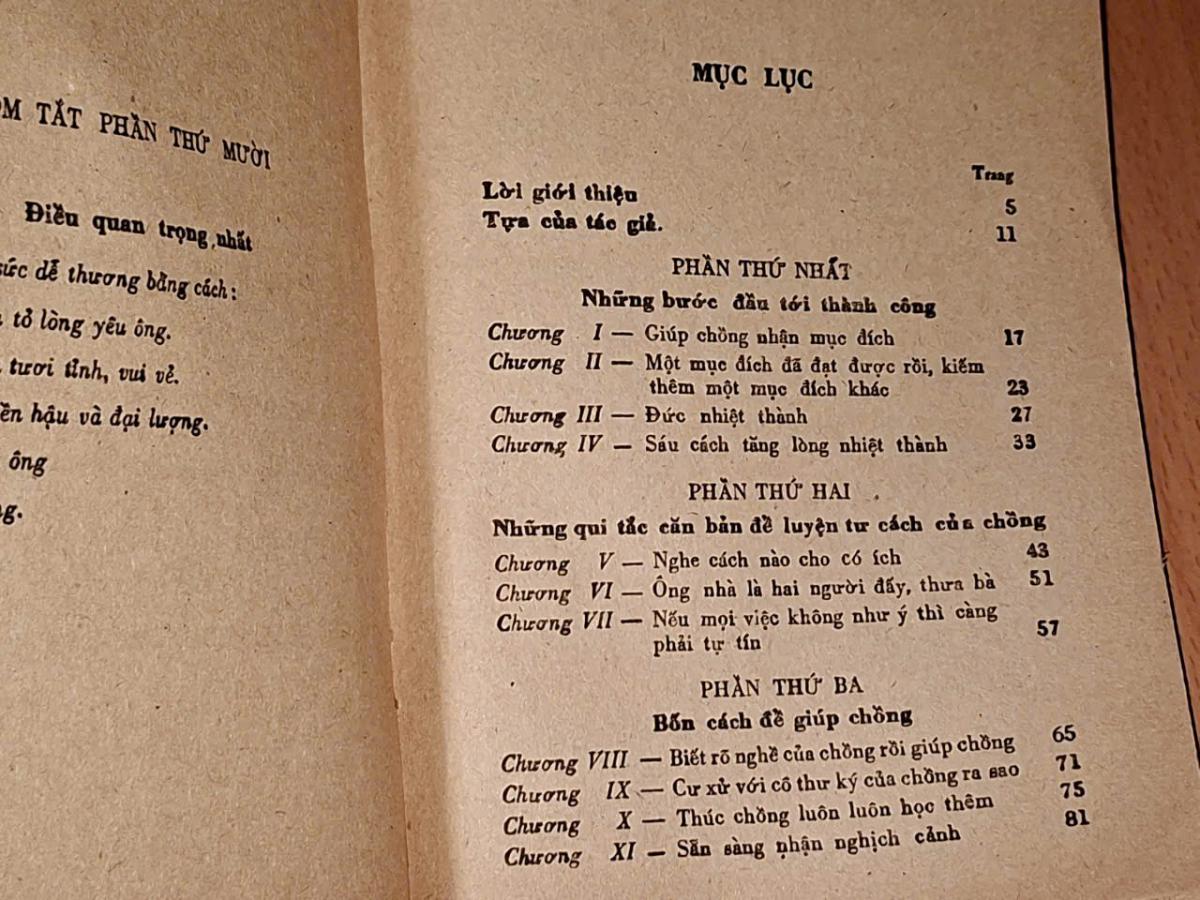 TẮT PHẦN THỨ MƯỜI
Điều quan trọng nhất
sức dễ thương bằng cách:
tỏ lòng yêu ông.
tươi tỉnh, vui vẻ.
hậu và đại lượng.
ông
MỤC LỤC
Trang
Lời giới thiệu 5
Tựa của tác giả. 11
PHẦN THỨ NHẤT
Những bước đầu tới thành công
Chương I — Giúp chồng nhận mục đích 17
Chương II — Một mục đích đã đạt được rồi, kiếm
thêm một mục đích khác 23
Chương III — Đức nhiệt thành 27
Chương IV — Sáu cách tăng lòng nhiệt thành 33
PHẦN THỨ HAI
Những qui tắc căn bản để luyện tư cách của chồng
Chương V — Nghe cách nào cho có ích 43
Chương VI — Ông nhà là hai người đấy, thưa bà 51
Chương VII — Nếu mọi việc không như ý thì càng
phải tự tín 57
PHẦN THỨ BA
Bốn cách để giúp chồng
Chương VIII — Biết rõ nghề của chồng rồi giúp chồng 65
Chương IX — Cư xử với cô thư ký của chồng ra sao 71
Chương X — Thúc chồng luôn luôn học thêm 75
Chương XI — Sẵn sàng nhận nghịch cảnh 81